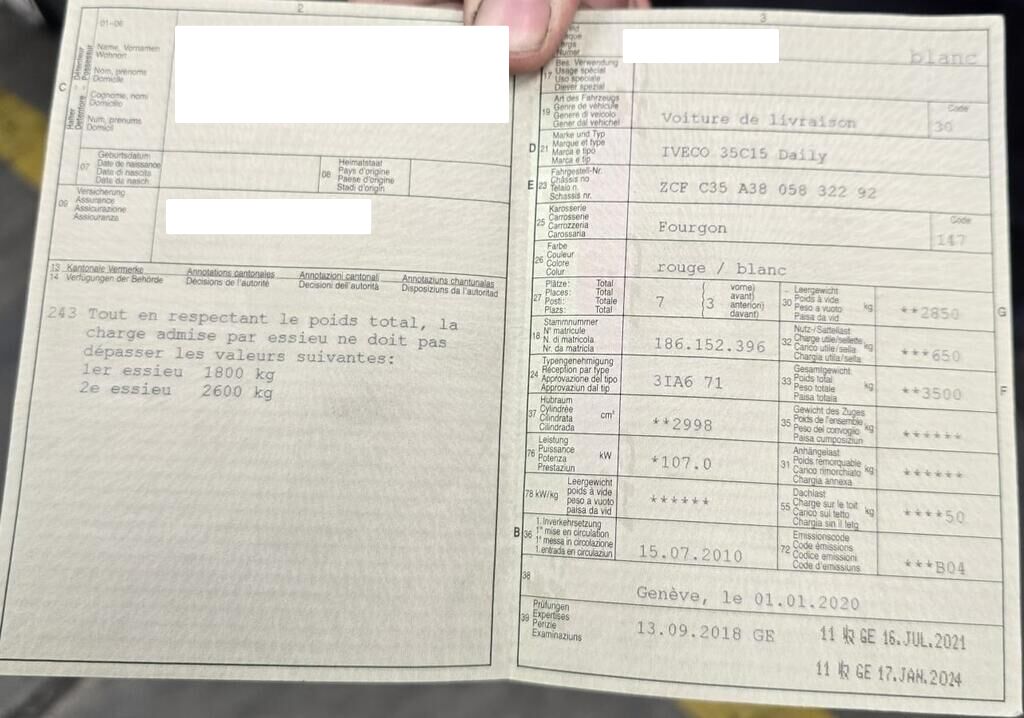 2
01-06
C
Halter
Détenteur
Détentore
Possesseur
Name, Vornamen
Wohnort
Nom, prénoms
Domicile
Cognome, nomi
Domicilio
Num, prenums
Domicil
07
Geburtsdatum
Date de naissance
Data di nascita
Data da nasch.
08
Heimatstaat
Pays d'origine
Paese d'origine
Stadi d'origin
09
Versicherung
Assurance
Assicurazione
Assicuranza
13 Kantonale Vermerke Annotations cantonales Annotazioni cantonali Annotaziuns chantunalas
14 Verfügungen der Behörde Décisions de l'autorité Decisioni dell'autorità Disposiziuns da l'autoritad
243 Tout en respectant le poids total, la
charge admise par essieu ne doit pas
dépasser les valeurs suivantes:
1er essieu 1800 kg
2e essieu 2600 kg
3
blanc
17
Bes. Verwendung
Usage spécial
Uso speciale
Diever spezial
19
Art des Fahrzeugs
Genre de véhicule
Genere di veicolo
Gener dal vehichel
Voiture de livraison
Code
30
D 21
Marke und Typ
Marque et type
Marca e tipo
Marca e tip
IVECO 35C15 Daily
E 23
Fahrgestell-Nr.
Châssis no
Telaio n.
Schassis nr.
ZCF C35 A38 058 322 92
25
Karosserie
Carrosserie
Carrozzeria
Carossaria
Fourgon
Code
147
26
Farbe
Couleur
Colore
Colur
rouge / blanc
27
Plätze: Total
Places: Total
Posti: Totale
Plazs: Total
7 (3
vorne)
avant)
anteriori)
davant)
30
Leergewicht
Poids à vide
Peso a vuoto
Paisa da vid
kg
**2850
G
18
Stammnummer
N° matricule
N. di matricola
Nr. da matricla
186.152.396
32
Nutz-/Sattellast
Charge utile/sellette
Carico utile/sella
Chargia utila/sella
kg
***650
24
Typengenehmigung
Réception par type
Approvazione del tipo
Approvaziun dal tip
3IA6 71
33
Gesamtgewicht
Poids total
Peso totale
Paisa totala
kg
**3500
F
37
Hubraum
Cylindrée
Cilindrata
Cilindrada
cm³
**2998
35
Gewicht des Zuges
Poids de l'ensemble
Peso del convoglio
Paisa cumposiziun
kg
******
76
Leistung
Puissance
Potenza
Prestaziun
kW
*107.0
31
Anhängelast
Poids remorquable
Carico rimorchiato
Chargia annexa
kg
******
78 kW/kg
Leergewicht
poids à vide
peso a vuoto
paisa da vid
******
55
Dachlast
Charge sur le toit
Carico sul tetto
Chargia sin il tetg
kg
****50
B 36
1. Inverkehrsetzung
1re mise en circulation
1a messa in circolazione
1. entrada en circulaziun
15.07.2010
72
Emissionscode
Code émissions
Codice emissioni
Code d'emissiuns
***B04
38
Genève, le 01.01.2020
39
Prüfungen
Expertises
Perizie
Examinaziuns
13.09.2018 GE
11 GE 16.JUL.2021
11 GE 17.JAN.2024